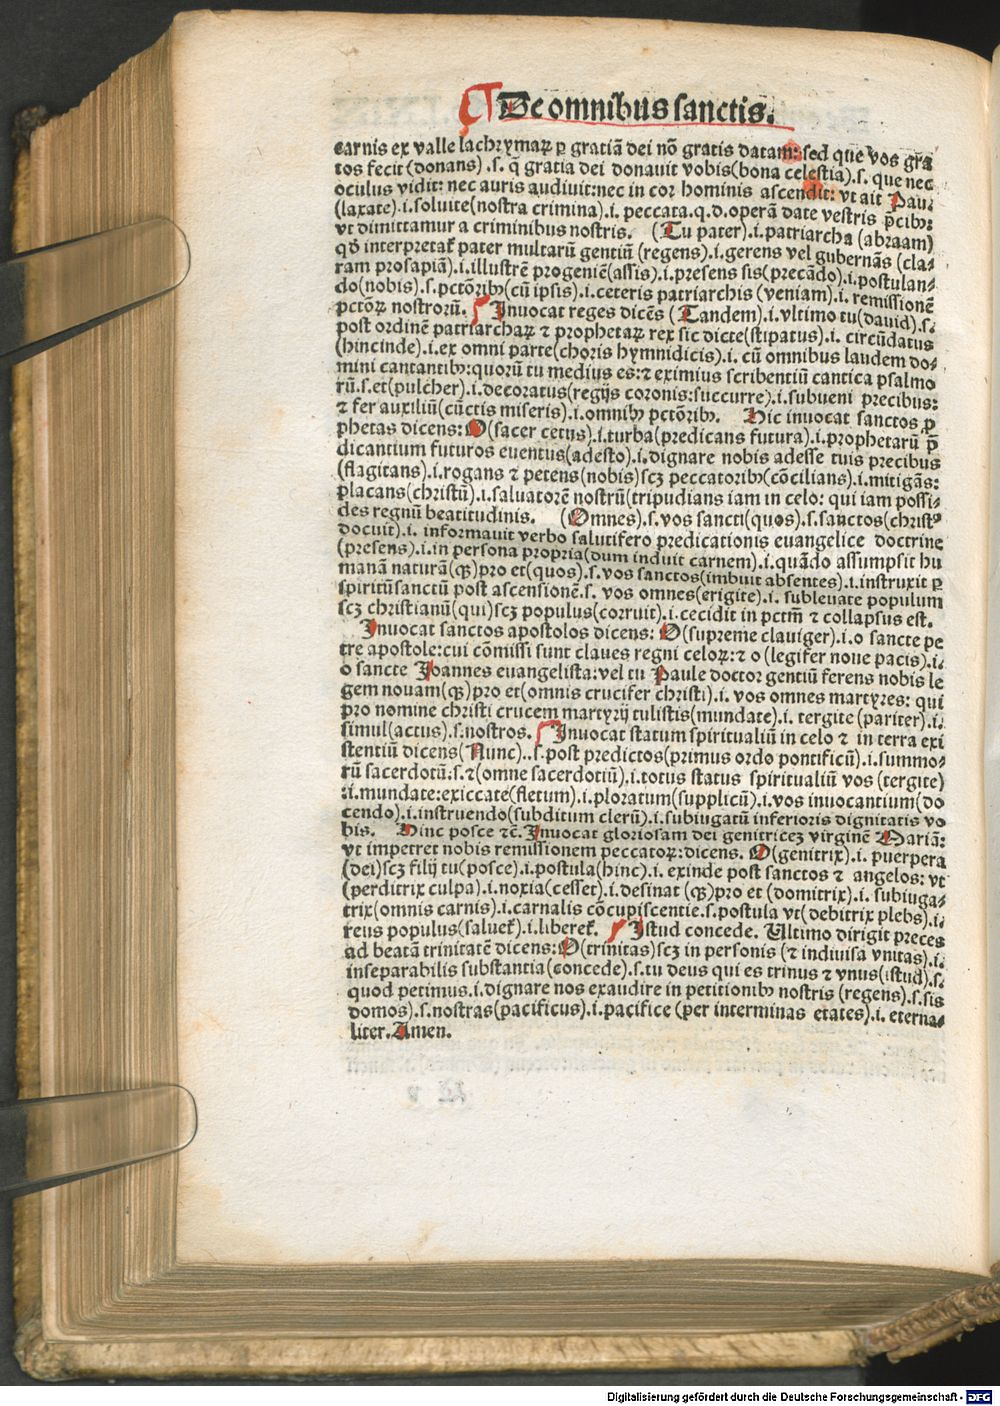 De omnibus sanctis.
carnis ex valle lachrymaꝝ ꝑ gratiā dei nō gratis datam: sed que vos gr̄a
tos fecit (donans) .s. q̄ gratia dei donauit vobis (bona celestia) .s. que nec
oculus vidit: nec auris audiuit: nec in cor hominis ascendit: vt ait Pau.
(laxate) .i. soluite (nostra crimina) .i. peccata. q. d. operā date vestris p̄cibꝰ:
vt dimittamur a criminibus nostris. (Tu pater) .i. patriarcha (abraam)
qđ interpretat̄ pater multarū gentiū (regens) .i. gerens vel gubernās (cla⸗
ram prosapiā) .i. illustrē progeniē (assis) .i. presens sis (precādo) .i. postulan⸗
do (nobis) .s. pctōribꝰ (cū ipsis) .i. ceteris patriarchis (veniam) .i. remissionē
pctōꝝ nostrorū. Inuocat reges dicēs (Tandem) .i. vltimo tu (dauid) .s.
post ordinē patriarchaꝝ ⁊ prophetaꝝ rex sic dicte (stipatus) .i. circūdatus
(hincinde) .i. ex omni parte (choris hymnidicis) .i. cū omnibus laudem do⸗
mini cantantibꝰ: quorū tu medius es: ⁊ eximius scribentiū cantica psalmo
rū. s. et (pulcher) .i. decoratus (regijs coronis: succurre) .i. subueni precibus:
⁊ fer auxiliū (cūctis miseris) .i. omnibꝰ pctōribꝰ. Hic inuocat sanctos ꝓ
phetas dicens: O (sacer cetus) .i. turba (predicans futura) .i. prophetarū p̄
dicantium futuros euentus (adesto) .i. dignare nobis adesse tuis precibus
(flagitans) .i. rogans ⁊ petens (nobis) scꝫ peccatoribꝰ (cōcilians) .i. mitigās:
placans (christū) .i. saluatorē nostrū (tripudians iam in celo: qui iam possi⸗
des regnū beatitudinis. (Omnes) .s. vos sancti (quos) .s. sanctos (christꝰ
docuit) .i. informauit verbo salutifero predicationis euangelice doctrine
(presens) .i. in persona propria (dum induit carnem) .i. quādo assumpsit hu
manā naturā (qꝫ) pro et (quos) .s. vos sanctos (imbuit absentes) .i. instruxit ꝑ
spiritūsanctū post ascensionē. s. vos omnes (erigite) .i. subleuate populum
scꝫ christianū (qui) scꝫ populus (corruit) .i. cecidit in pctm̄ ⁊ collapsus est.
Inuocat sanctos apostolos dicens: O (supreme clauiger) .i. o sancte pe
tre apostole: cui cōmissi sunt claues regni celoꝝ: ⁊ o (legifer noue pacis) .i.
o sancte Joannes euangelista: vel tu Paule doctor gentiū ferens nobis le
gem nouam (qꝫ) pro et (omnis crucifer christi) .i. vos omnes martyres: qui
pro nomine christi crucem martyrij tulistis (mundate) .i. tergite (pariter) .i.
simul (actus) .s. nostros. Inuocat statum spiritualiū in celo ⁊ in terra exi
stentiū dicens (Nunc) .. s. post predictos (primus ordo pontificū) .i. summo⸗
rū sacerdotū: s. ⁊ (omne sacerdotiū) .i. totus status spiritualiū vos (tergite)
.i. mundate: exiccate (fletum) .i. ploratum (supplicū) .i. vos inuocantium (do
cendo) .i. instruendo (subditum clerū) .i. subiugatū inferioris dignitatis vo
bis. Hinc posce ⁊c̄. Inuocat gloriosam dei genitricez virginē Mariā:
vt impetret nobis remissionem peccatoꝝ: dicens. O (genitrix) .i. puerpera
(dei) scꝫ filij tu (posce) .i. postula (hinc) .i. exinde post sanctos ⁊ angelos: vt
(perditrix culpa) .i. noxia (cesset) .i. desinat (qꝫ) pro et (domitrix) .i. subiuga⸗
trix (omnis carnis) .i. carnalis cōcupiscentie. s. postula vt (debitrix plebs) .i.
reus populus (saluet̄) .i. liberet̄. Istud concede. Ultimo dirigit preces
ad beatā trinitatē dicens: O (trinitas) scꝫ in personis (⁊ indiuisa vnitas) .i.
inseparabilis substantia (concede) .s. tu deus qui es trinus ⁊ vnus (istud) .s.
quod petimus. i. dignare nos exaudire in petitionibꝰ nostris (regens) .s. sis
domos) .s. nostras (pacificus) .i. pacifice (per interminas etates) .i. eterna⸗
liter. Amen.
Digitalisierung gefördert durch die Deutsche Forschungsgemeinschaft - DFG